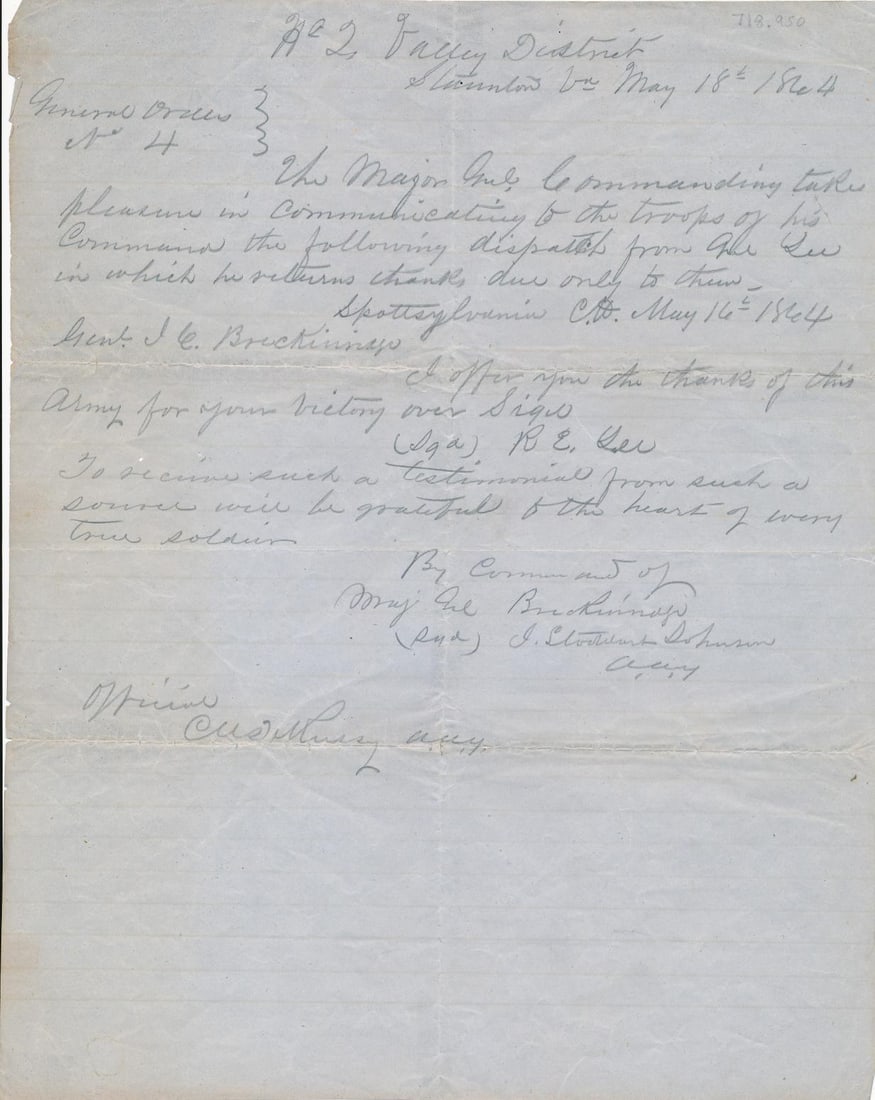 718.950
Hd Q Valley District
Staunton Va May 18t 1864
General Orders
No 4
The Major Gnl. Commanding take
pleasure in communicating to the troops of his
Command the following dispatch from Gnl Lee
in which he returns thanks due only to them_
Spottsylvania C.H. May 16t 1864
Genl. J C. Breckinridge
I offer you the thanks of this
Army for your Victory over Sigel
(Sgd) R E. Lee
To receive such a testimonial from such a
source will be grateful to the heart of every
true soldier
By Command of
Maj Gnl Breckinridge
(Sgd) J. Stoddart Johnson
A.A.G
Official
A.A.G.